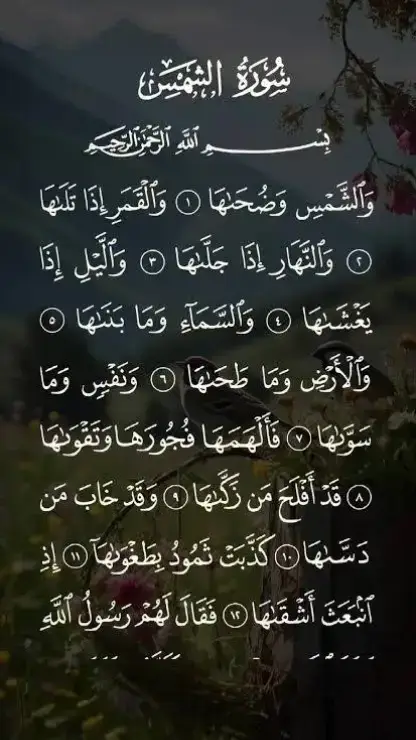 سُورَةُ الشَّمْسِ
بِسْمِ ٱللَّهِ ٱلرَّحْمَٰنِ ٱلرَّحِيمِ
وَٱلشَّمْسِ وَضُحَىٰهَا ١ وَٱلْقَمَرِ إِذَا تَلَىٰهَا
٢ وَٱلنَّهَارِ إِذَا جَلَّىٰهَا ٣ وَٱلَّيْلِ إِذَا
يَغْشَىٰهَا ٤ وَٱلسَّمَآءِ وَمَا بَنَىٰهَا ٥
وَٱلْأَرْضِ وَمَا طَحَىٰهَا ٦ وَنَفْسٍ وَمَا
سَوَّىٰهَا ٧ فَأَلْهَمَهَا فُجُورَهَا وَتَقْوَىٰهَا
٨ قَدْ أَفْلَحَ مَن زَكَّىٰهَا ٩ وَقَدْ خَابَ مَن
دَسَّىٰهَا ١٠ كَذَّبَتْ ثَمُودُ بِطَغْوَىٰهَآ ١١ إِذِ
ٱنۢبَعَثَ أَشْقَىٰهَا ١٢ فَقَالَ لَهُمْ رَسُولُ ٱللَّهِ